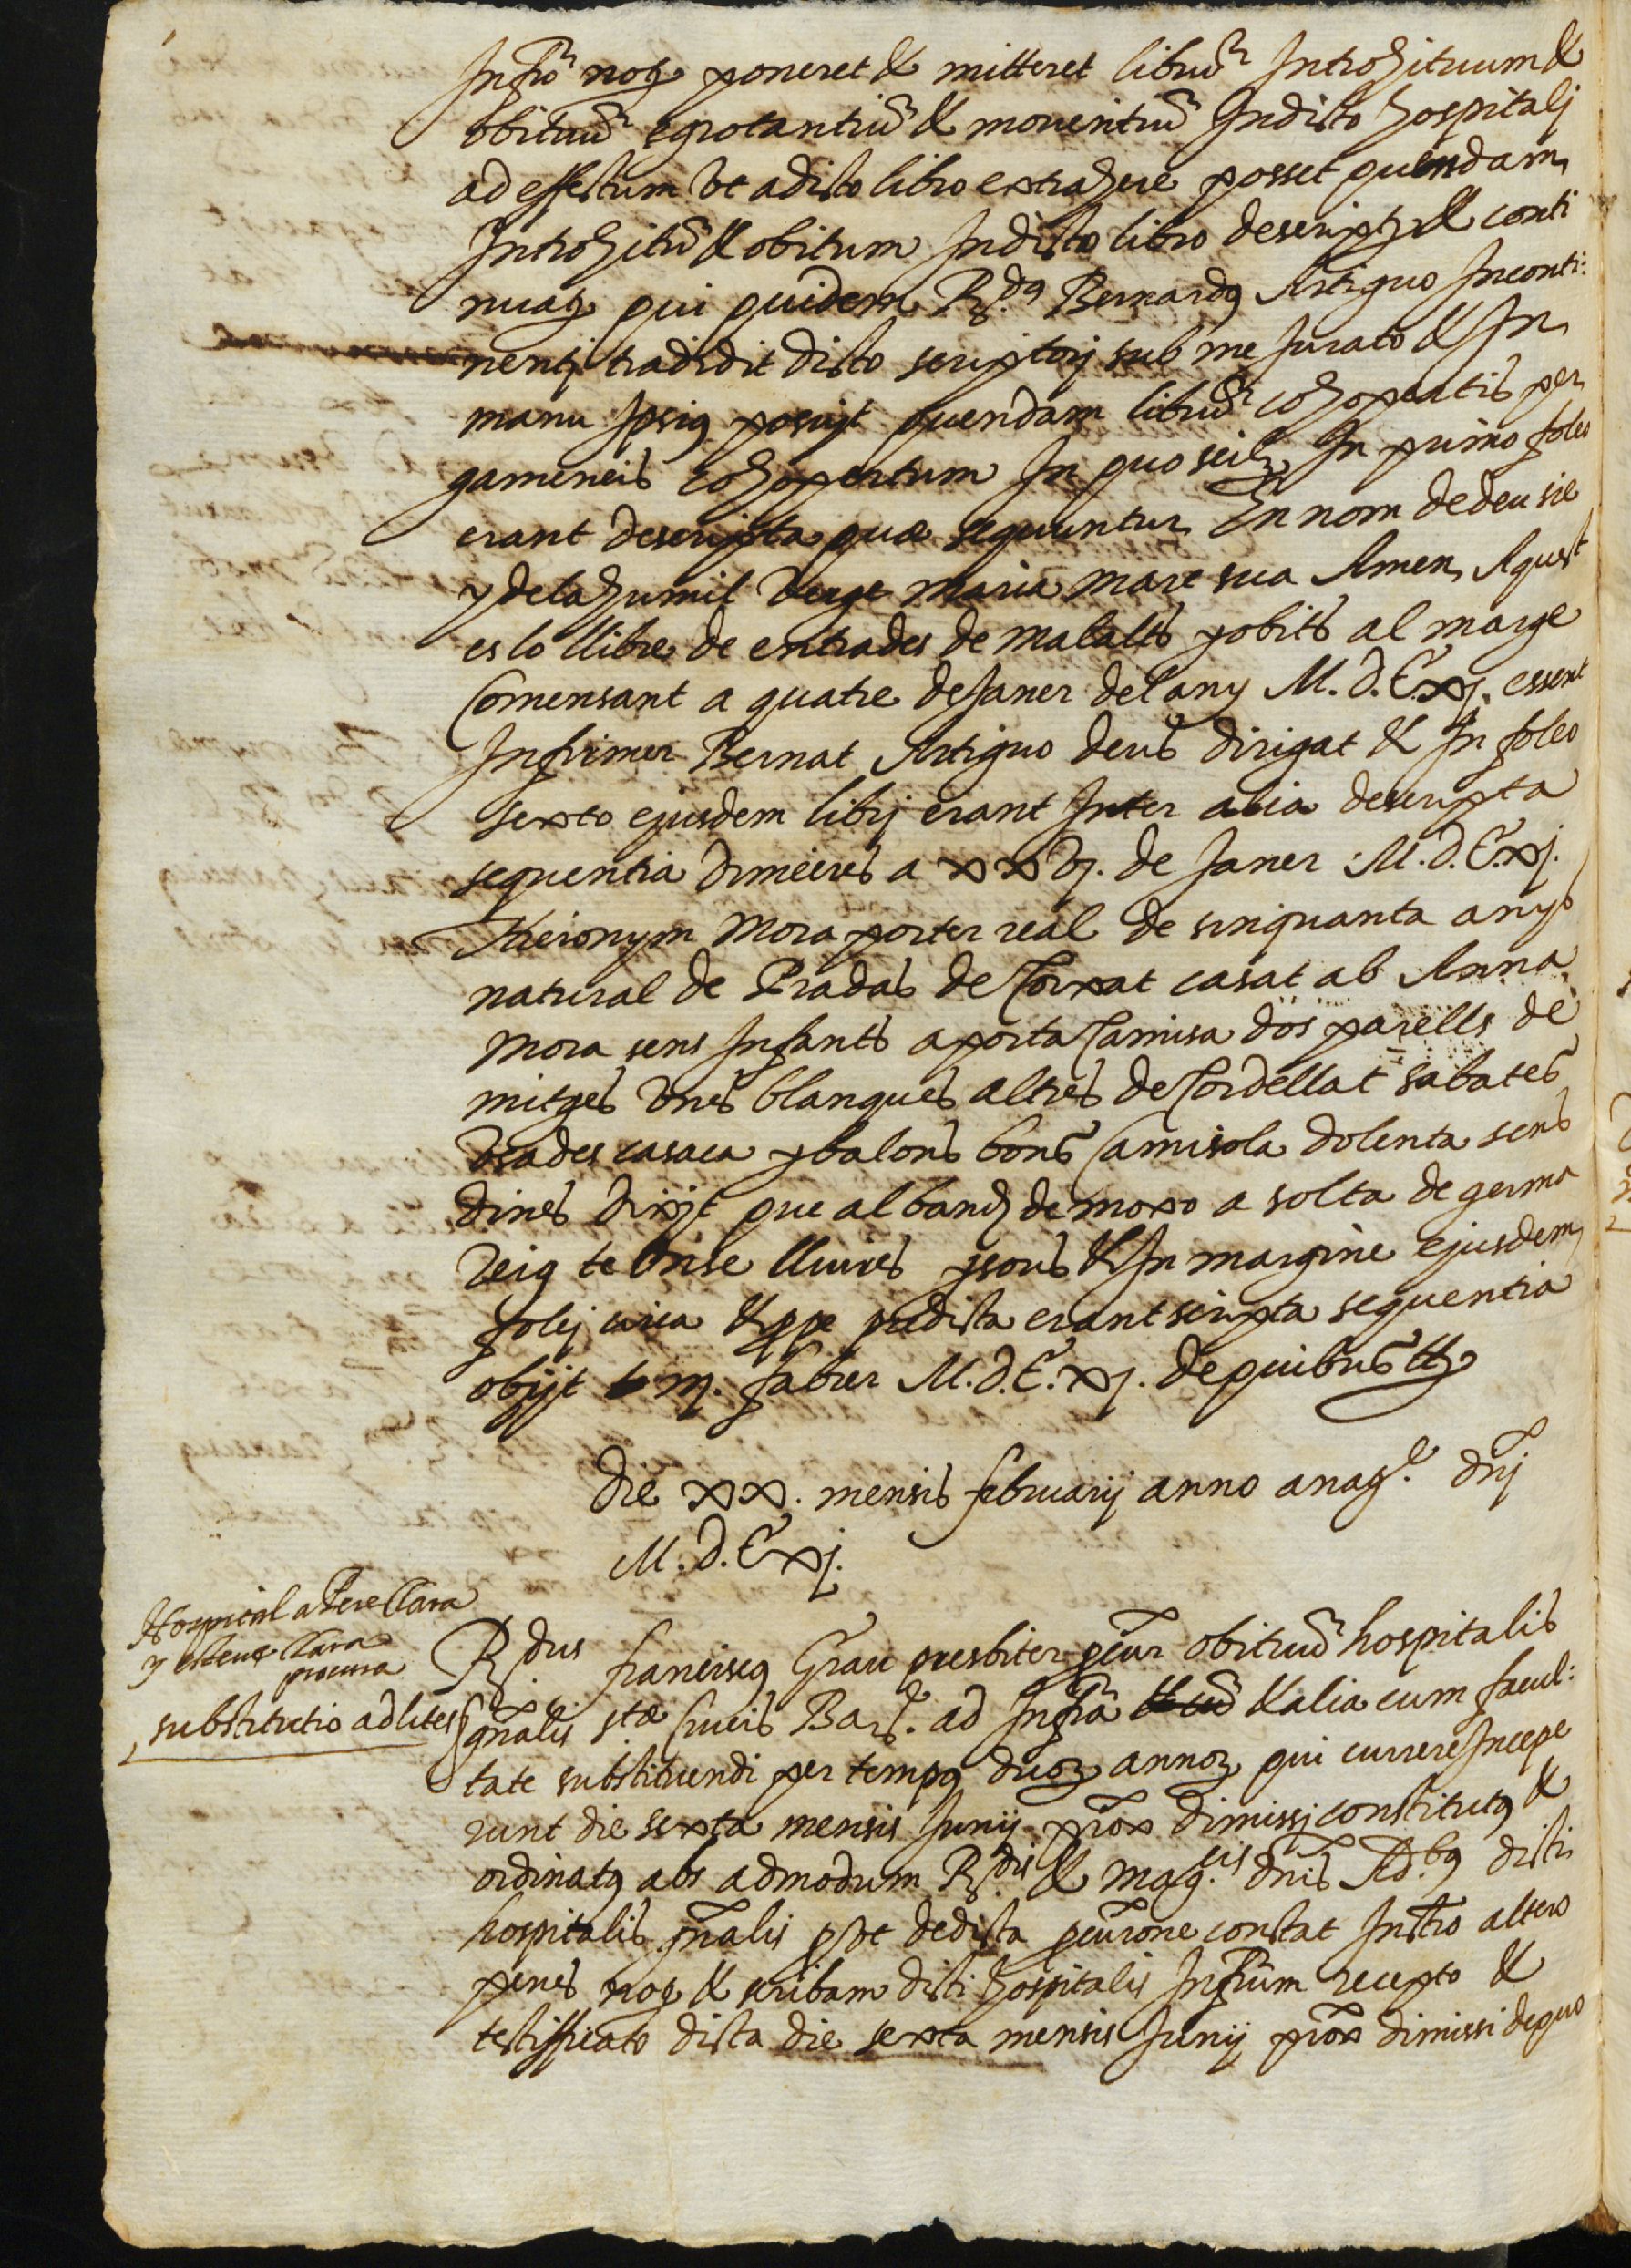 Infro noᵒ poneret & mitteret librũ Introhituum &
obituũ egrotantiũ & morientiũ Indicto hospitalj
ad effectum vt adicto libro extrahere posset quendam
Introhitũ & obitum Indicto libro descriptũ & conti
nuatũ qui quidem R.ᵈᵘˢ Bernardus Artiguo Inconti:
nentj tradidit dicto scriptorj sub me Jurato & In
manu Ipsius posuit quendam librũ cohopertis per
gameneis cohopertum In quo scilt In primo foleo
erant descripta quæ sequuntur En nom de deu sie
y dela humil verge Maria mare sua Amen Aquest
es lo llibre de entrades de malalts y obits al marge
Comensant a quatre de Janer del any M.D.C.xj. essent
Infirmer Bernat Artiguo deus dirigat & In foleo
sexto ejusdem librj erant Inter alia descripta
sequentia dimecres a xxvj. de Janer M.D.C.xj.
Hieronym Mora porter real de sinquanta anys
natural de Pradas de casat ab Anna
Mora sens Infants aporta Camisa dos parells de
mitges vnes blanques altres de Cordellat sabates
vsades casaca y balons bons Camisola dolenta sens
dines dixit que al banch de moxo a solta de germa
Reig te onse lliures y sous & In margine ejusdem
folij circa & ppe predicta erant scripta sequentia
obijt a iij. fabrer M.D.C.xj. de quibus &ᶜ
Die xx. mensis februarij anno a natᵉ. dñj
M.D.C.xj.
Hospital a Pere Clara
y esteue Clara
procura
substitutio ad lites
R.ᵈᵘˢ franciscus Grau presbiter pcur obituũ hospitalis
gñalis stæ Crucis Barᵉ. ad Infra & alia cum facul:
tate substituendi per tempus duoᵣ annoᵣ qui currere Incepe
runt die sexta mensis Junij prox dimissj constitutus &
ordinatus abs admodum R.ᵈⁱˢ & mag.ᶜⁱˢ dñis Ad.ᵇᵘˢ dicti
hospitalis gñalis pvt de dicta pcurone constat Instro altero
penes noᵒ & scribam dicti hospitalis Infrum recepto &
testifficato dicta die sexta mensis Junij prox dimissi de quo